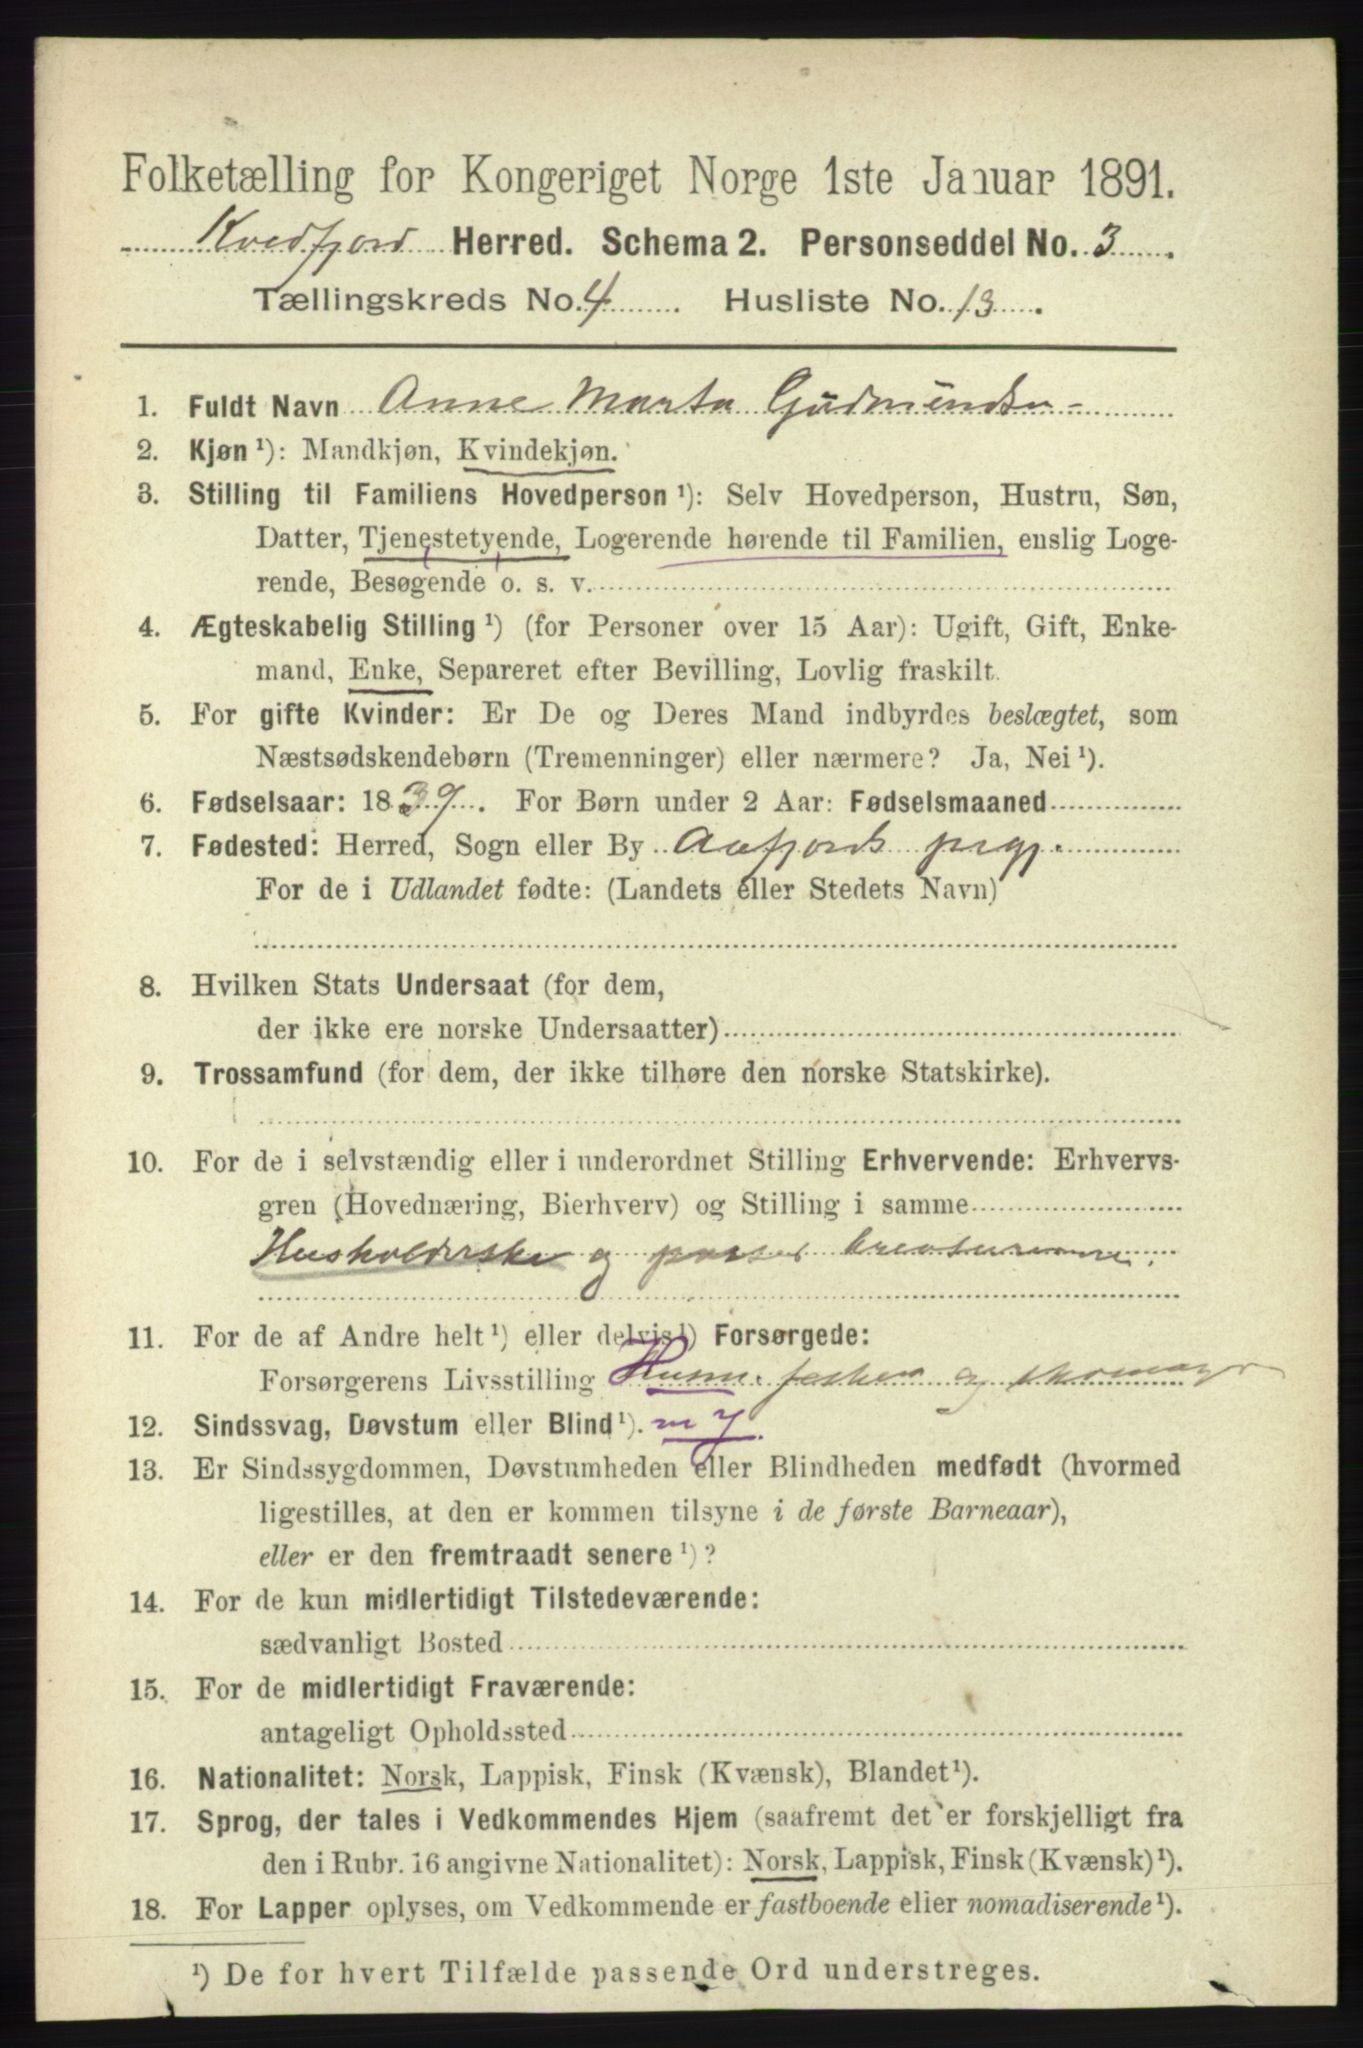 Folketælling for Kongeriget Norge 1ste Januar 1891.
Kvedfjord Herred. Schema 2. Personseddel No. 3.
Tællingskreds No. 4. Husliste No. 13.
1. Fuldt Navn Anne Marta
2. Kjøn ¹): Mandkjøn, Kvindekjøn.
3. Stilling til Familiens Hovedperson ¹): Selv Hovedperson, Hustru, Søn,
Datter, Tjenestetyende, Logerende hørende til Familien, enslig Loge-
rende, Besøgende o. s. v.
4. Ægteskabelig Stilling ¹) (for Personer over 15 Aar): Ugift, Gift, Enke-
mand, Enke, Separeret efter Bevilling, Lovlig fraskilt.
5. For gifte Kvinder: Er De og Deres Mand indbyrdes beslægtet, som
Næstsødskendebørn (Tremenninger) eller nærmere? Ja, Nei ¹).
6. Fødselsaar: 1839. For Børn under 2 Aar: Fødselsmaaned
7. Fødested: Herred, Sogn eller By Aafjords prgj.
For de i Udlandet fødte: (Landets eller Stedets Navn)
8. Hvilken Stats Undersaat (for dem,
der ikke ere norske Undersaatter)
9. Trossamfund (for dem, der ikke tilhøre den norske Statskirke).
10. For de i selvstændig eller i underordnet Stilling Erhvervende: Erhvervs-
gren (Hovednæring, Bierhverv) og Stilling i samme
Husholderske og passer kreaturerne.
11. For de af Andre helt ¹) eller delvis ¹) Forsørgede:
Forsørgerens Livsstilling Husm. fisker og
12. Sindssvag, Døvstum eller Blind ¹).
13. Er Sindssygdommen, Døvstumheden eller Blindheden medfødt (hvormed
ligestilles, at den er kommen tilsyne i de første Barneaar),
eller er den fremtraadt senere ¹)?
14. For de kun midlertidigt Tilstedeværende:
sædvanligt Bosted
15. For de midlertidigt Fraværende:
antageligt Opholdssted
16. Nationalitet: Norsk, Lappisk, Finsk (Kvænsk), Blandet ¹).
17. Sprog, der tales i Vedkommendes Hjem (saafremt det er forskjelligt fra
den i Rubr. 16 angivne Nationalitet): Norsk, Lappisk, Finsk (Kvænsk) ¹).
18. For Lapper oplyses, om Vedkommende er fastboende eller nomadiserende ¹).
¹) De for hvert Tilfælde passende Ord understreges.